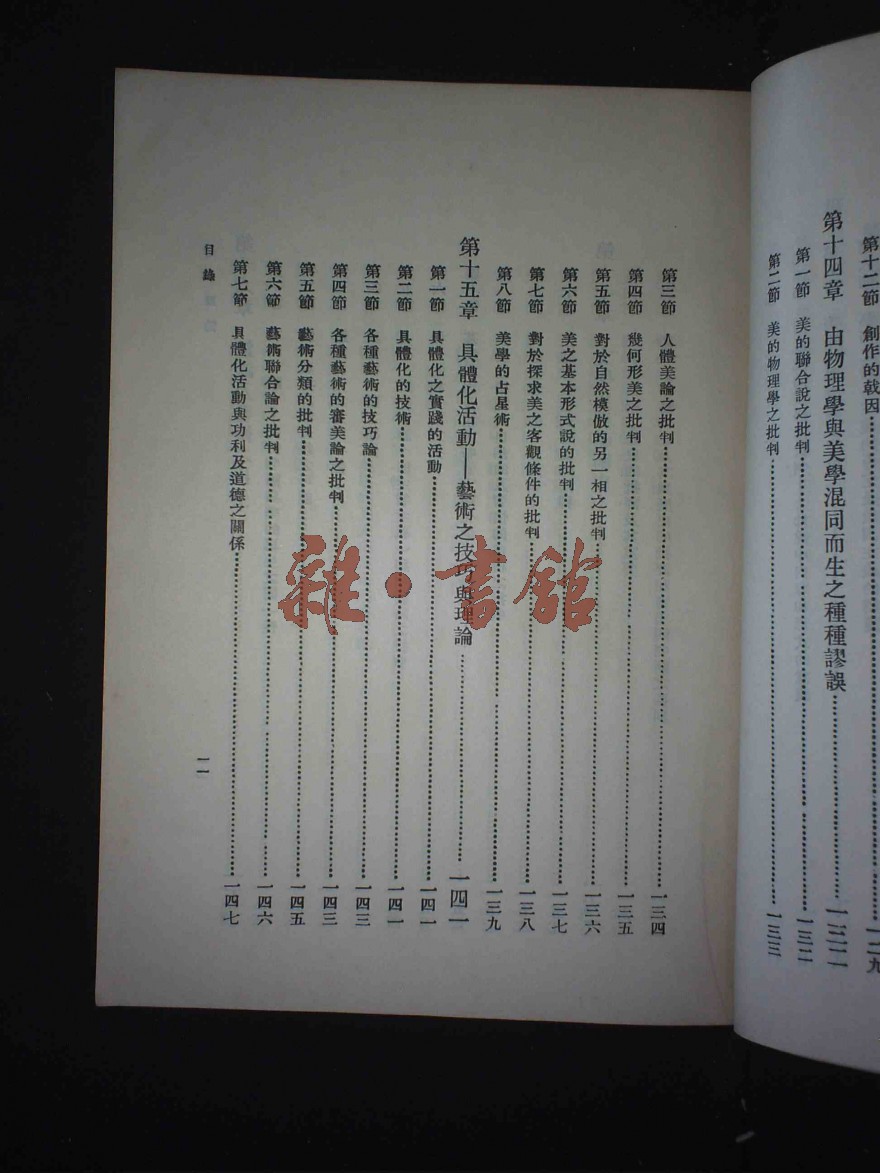 第十二節 創作的戟因 一二九
第十四章 由物理學與美學混同而生之種種謬誤 一三二
第一節 美的聯合說之批判 一三二
第二節 美的物理學之批判 一三三
第三節 人體美論之批判 一三四
第四節 幾何形美之批判 一三五
第五節 對於自然模倣的另一相之批判 一三六
第六節 美之基本形式說的批判 一三七
第七節 對於探求美之客觀條件的批判 一三八
第八節 美學的占星術 一三九
第十五章 具體化活動——藝術之技巧與理論 一四一
第一節 具體化之實踐的活動 一四一
第二節 具體化的技術 一四一
第三節 各種藝術的技巧論 一四三
第四節 各種藝術的審美論之批判 一四三
第五節 藝術分類的批判 一四五
第六節 藝術聯合論之批判 一四六
第七節 具體化活動與功利及道德之關係 一四七
目錄
一一
雜·書館